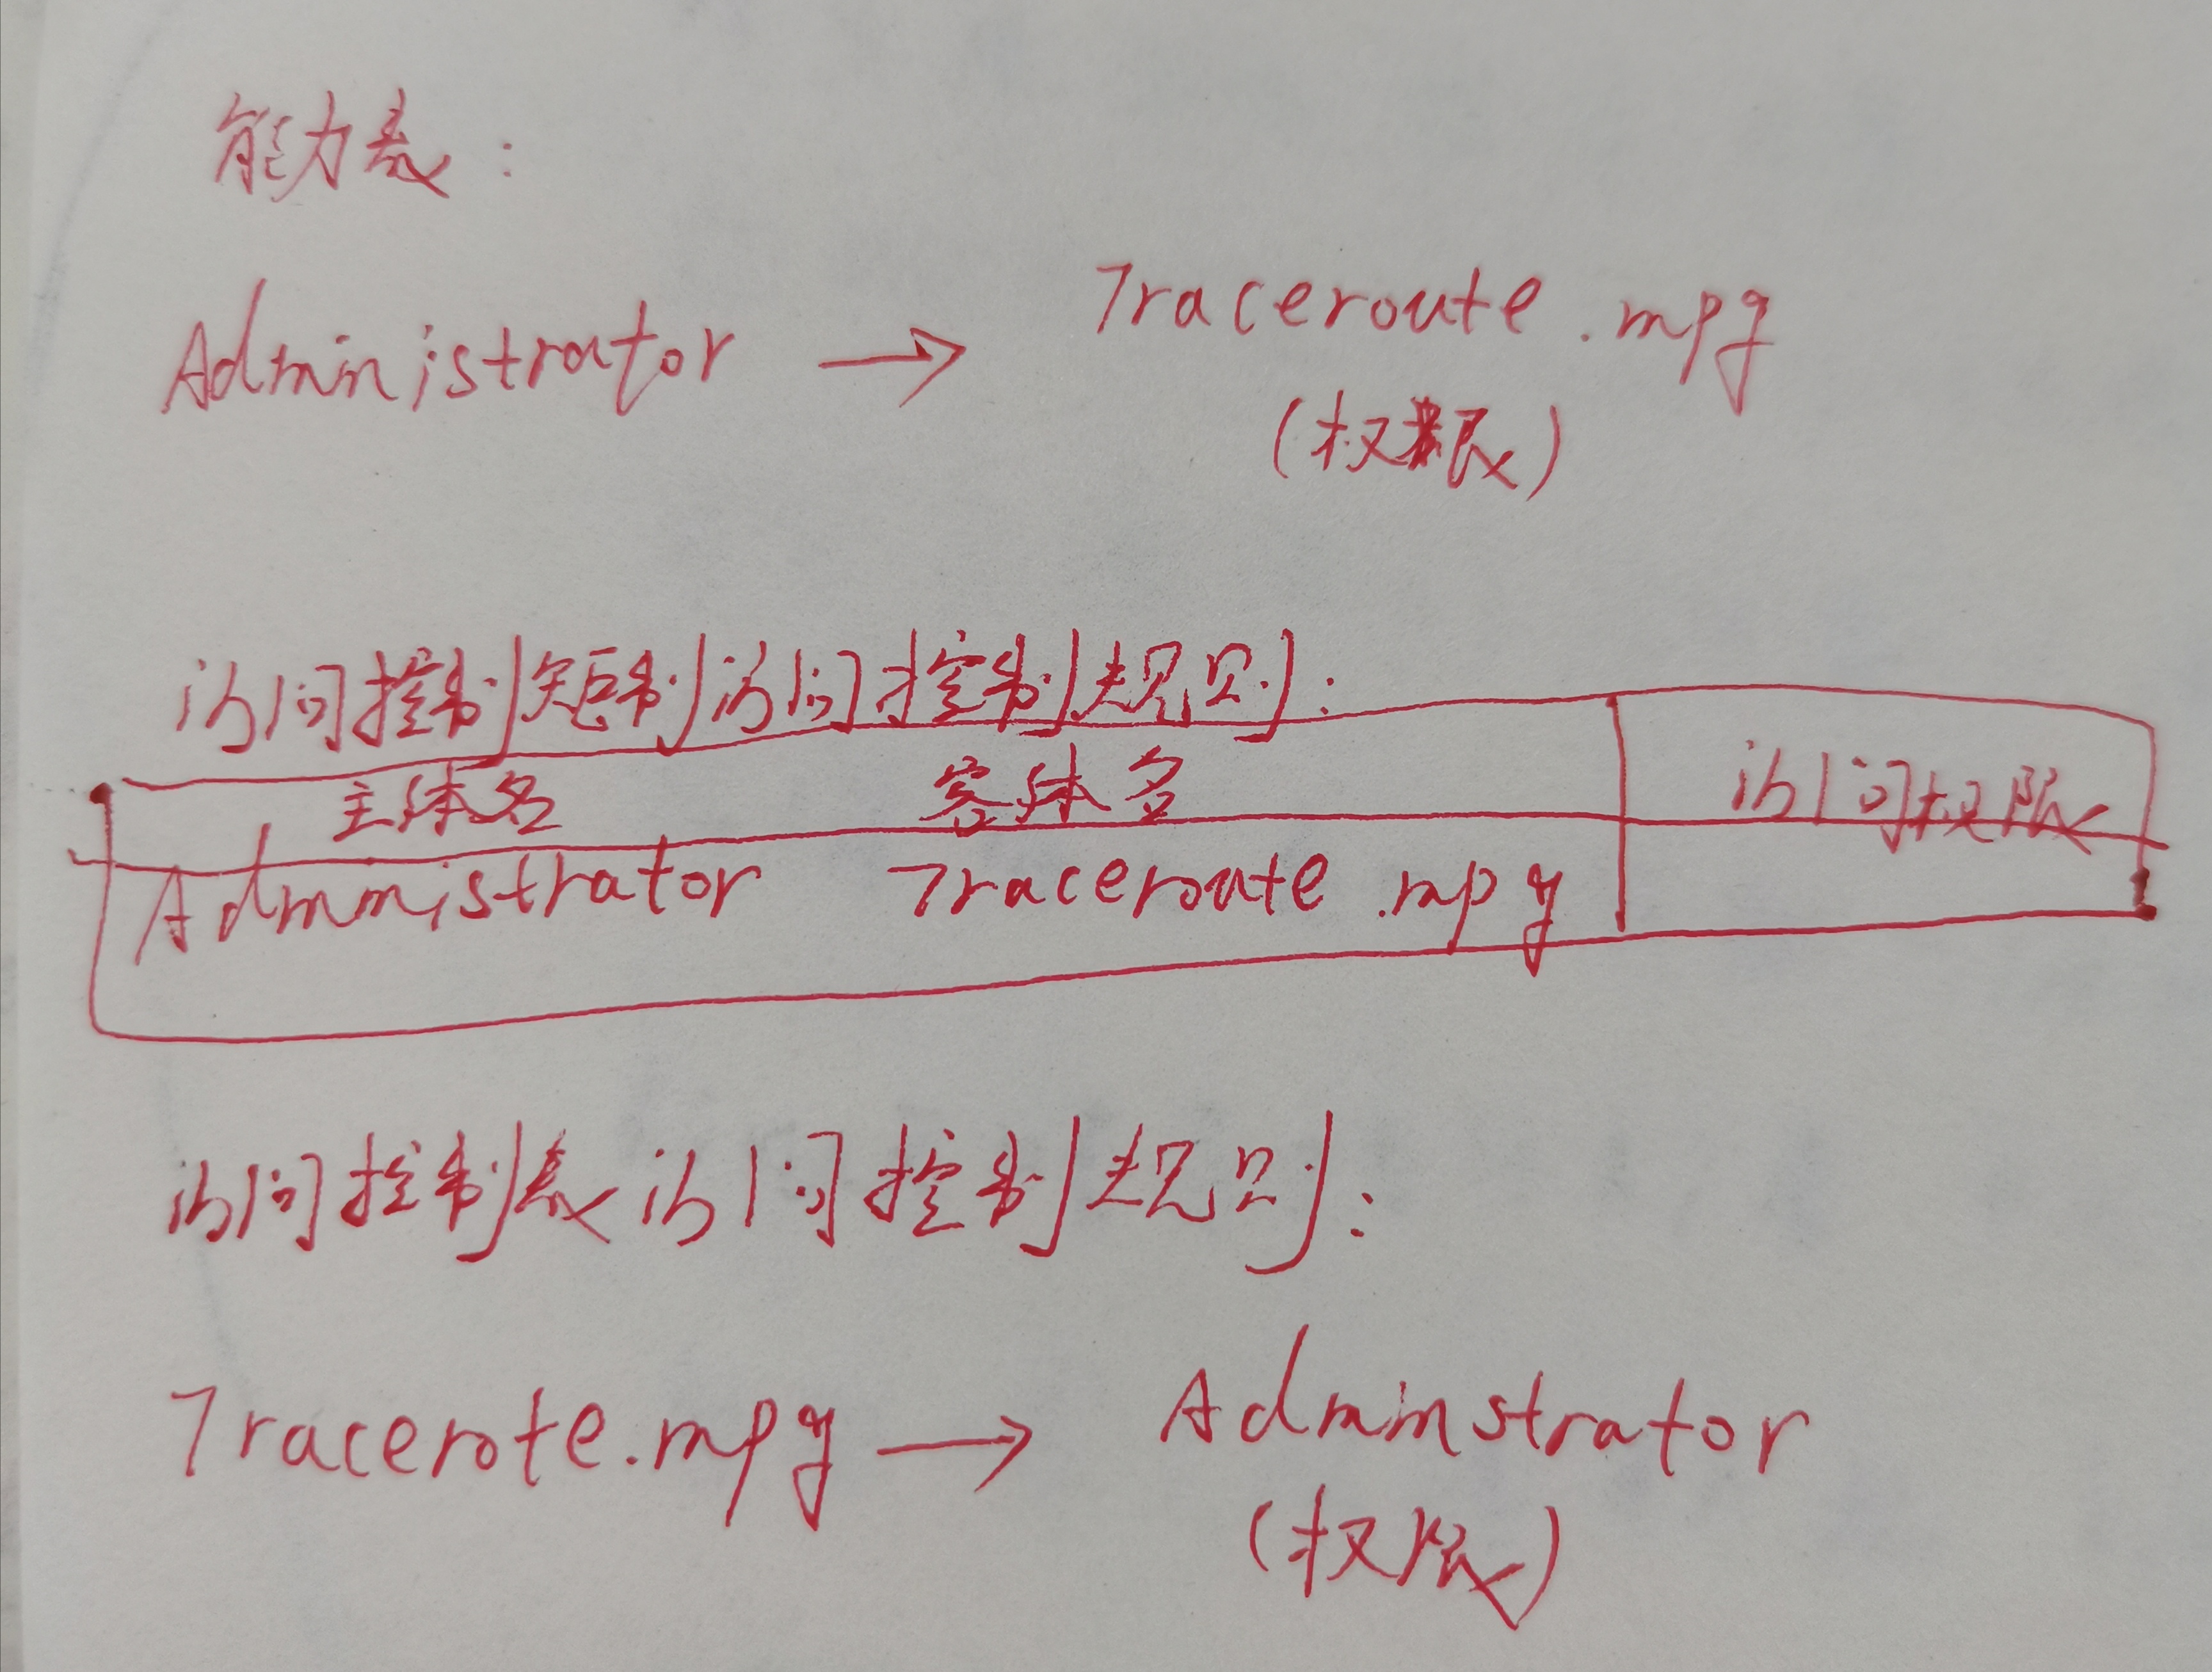 能力表:
Administrator → Traceroute.mpg
(权限)
访问控制矩制访问控制规则:
主体名 客体名 访问权限
Administrator Traceroute.mpg
访问控制表访问控制规则:
Tracerote.mpg → Adminstrator
(权限)